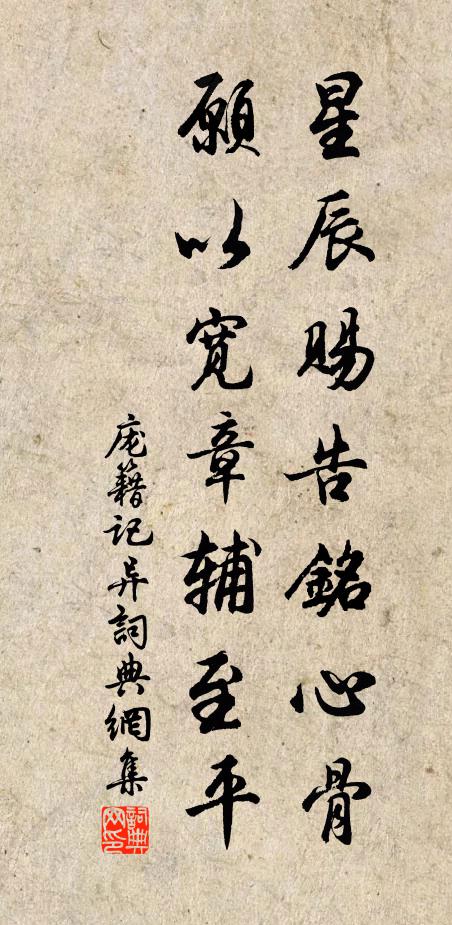 星辰賜告銘心骨
願以寬章輔至平
庞籍记异詞典網集
詞典网印